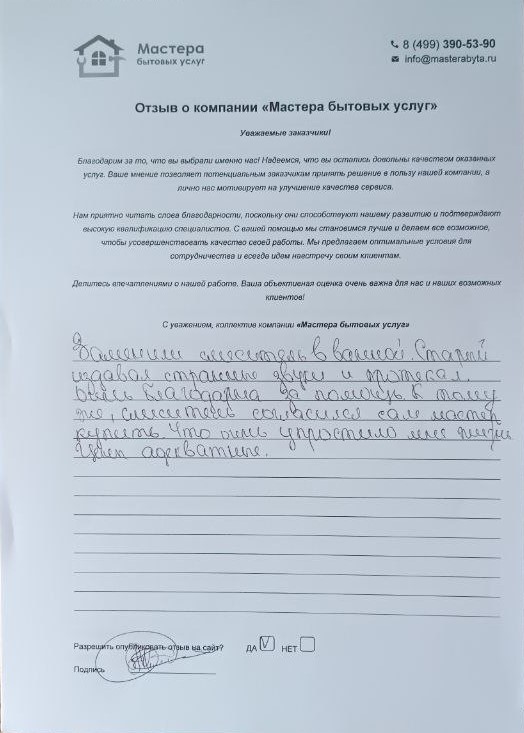 Мастера
бытовых услуг
8 (499) 390-53-90
info@masterabyta.ru
Отзыв о компании «Мастера бытовых услуг»
Уважаемые заказчики!
Благодарим за то, что вы выбрали именно нас! Надеемся, что вы остались довольны качеством оказанных
услуг. Ваше мнение позволяет потенциальным заказчикам принять решение в пользу нашей компании, а
лично нас мотивирует на улучшение качества сервиса.
Нам приятно читать слова благодарности, поскольку они способствуют нашему развитию и подтверждают
высокую квалификацию специалистов. С вашей помощью мы становимся лучше и делаем все возможное,
чтобы усовершенствовать качество своей работы. Мы предлагаем оптимальные условия для
сотрудничества и всегда идем навстречу своим клиентам.
Делитесь впечатлениями о нашей работе. Ваша объективная оценка очень важна для нас и наших возможных
клиентов!
С уважением, коллектив компании «Мастера бытовых услуг»
Заменили смеситель в ванной. Старый
издавал странные звуки и протекал.
Очень благодарна за помощь. К тому
же, смеситель согласился сам мастер
купить. Что очень упростило мне жизнь
Цены адекватные.
Разрешить опубликовать отзыв на сайт? ДА V НЕТ
Подпись